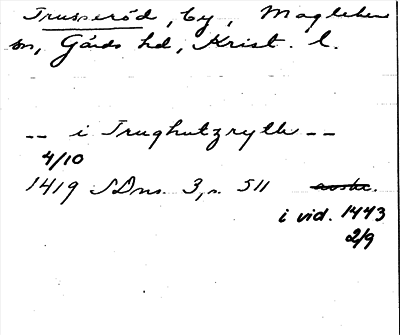 Trusseröd, by, Maglehem
sn, Gärds hd, Krist. l.
-- i Trughutzryth --
4/10
1419 SDns. 3, s. 511 avskr.
i vid. 1443
2/9